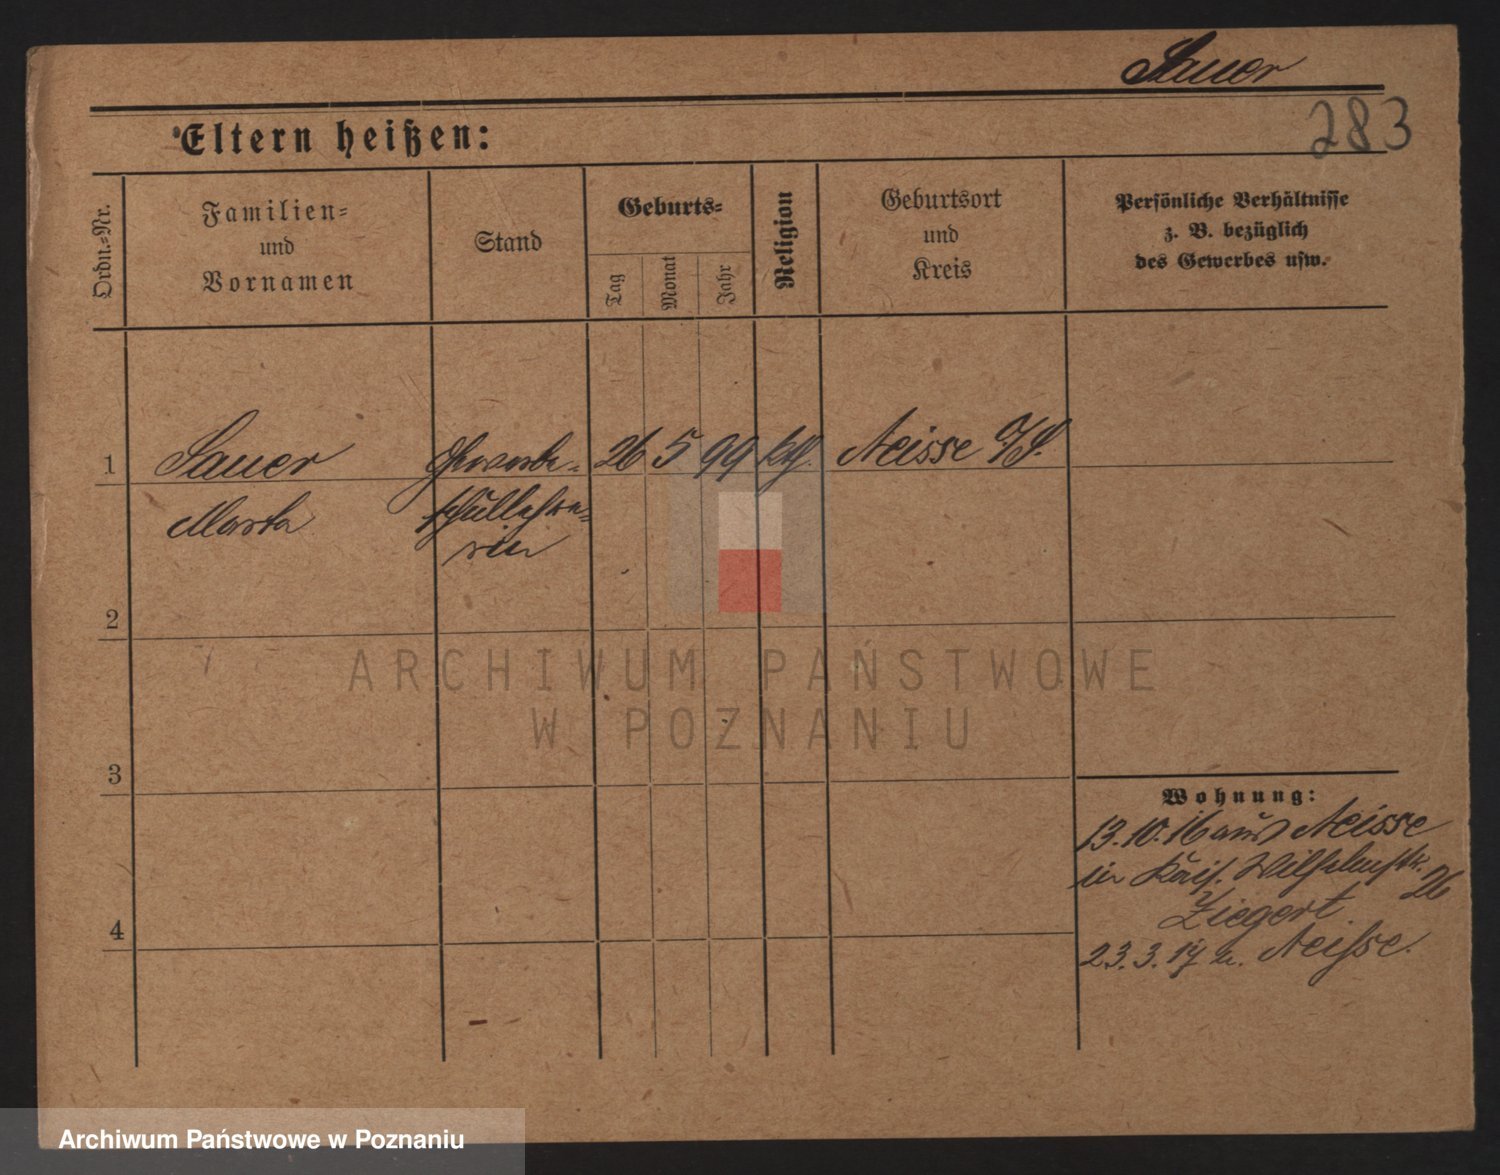 Sauer
283
Eltern heißen:
Ordn.=Nr.
Familien=
und
Vornamen
Stand
Geburts=
Tag
Monat
Jahr
Religion
Geburtsort
und
Kreis
Persönliche Verhältnisse
z. B. bezüglich
des Gewerbes usw.
1
Sauer
Gewerbe-
26 5 99
Neisse
Marta
schullehre-
rin
2
ARCHIWUM PAŃSTWOWE
W POZNANIU
3
Wohnung:
13.10.16 aus Neisse
in Kais. Wilhelmstr. 26
Ziegert
4
23.3.17 n. Neisse.
Archiwum Państwowe w Poznaniu